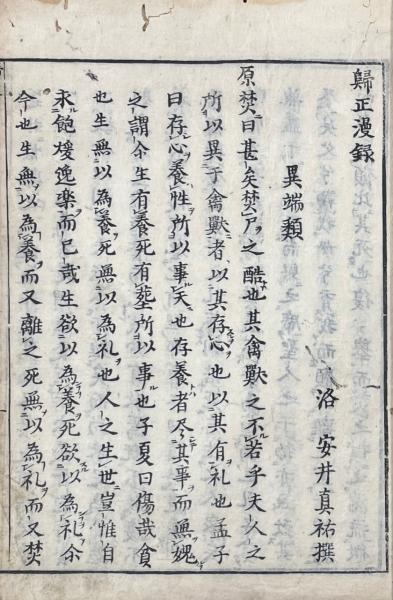 歸正漫録
洛 安井真祐撰
異端類
原焚曰甚矣焚尸之酷也其禽獸之不若乎夫人之
所以異于禽獸者以其存心也以其有礼也孟子
曰存心養性所以事天也存養者尽其事而無愧
之謂今生有養死有塟所以事也子夏曰傷哉貧
也生無以為養死無以為礼也人之生世豈惟自
求飽煖逸樂而已哉生欲以為養死欲以為礼今
今也生無以為養而又離之死無以為礼而又焚